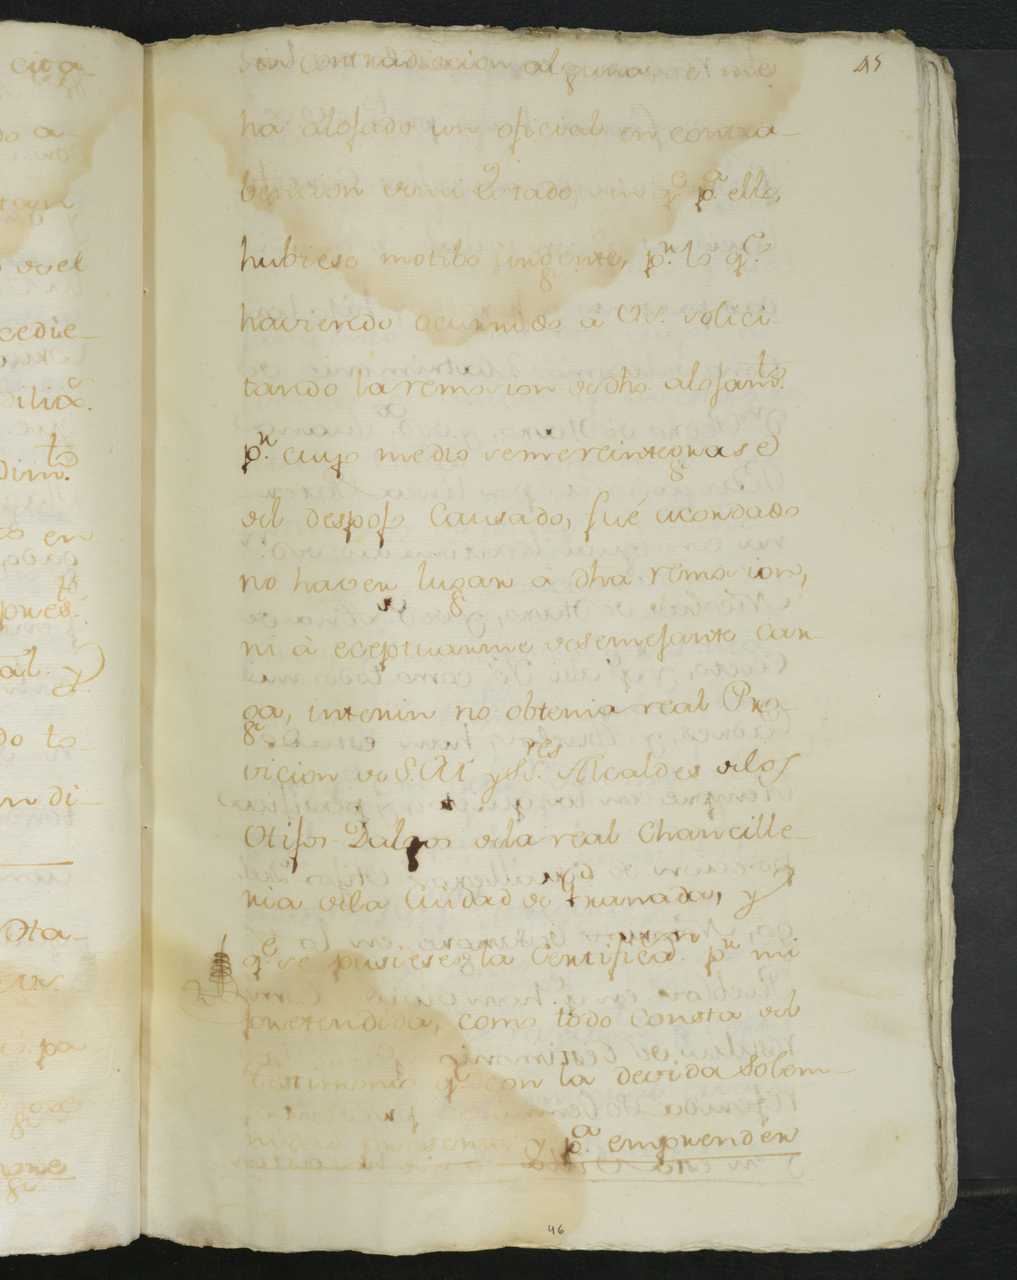 45
sin contradiccion alguna, se me
ha alojado un oficial en contra-
bencion de mi Estado, sin q.e p.a ello,
hubiese motibo urgente, p.r lo q.e
haviendo ocurrido à V.S. solici-
tando la remosion de dho alojam.to
p.r cuyo medio se me reintegrase
del despojo Causado, fué acordado
no haver lugar à dha remosion,
ni à eceptuarme de semejante car-
ga, interin no obtenia real Pro-
vicion de S.M. y SS.res Alcaldes delos
Otijos Dalgo dela real Chancille-
ria dela Ciudad de Granada, y
q.e se pusiese la Certificaz.n p.r mi
pretendida, como todo consta del
testimonio q.e con la devida Solem-
y p.a emprender
46
cuya
do a-
del
cedie-
dilix.a
dim.to
en
pres.
al. y
do to-
n di-
Ota-
pa